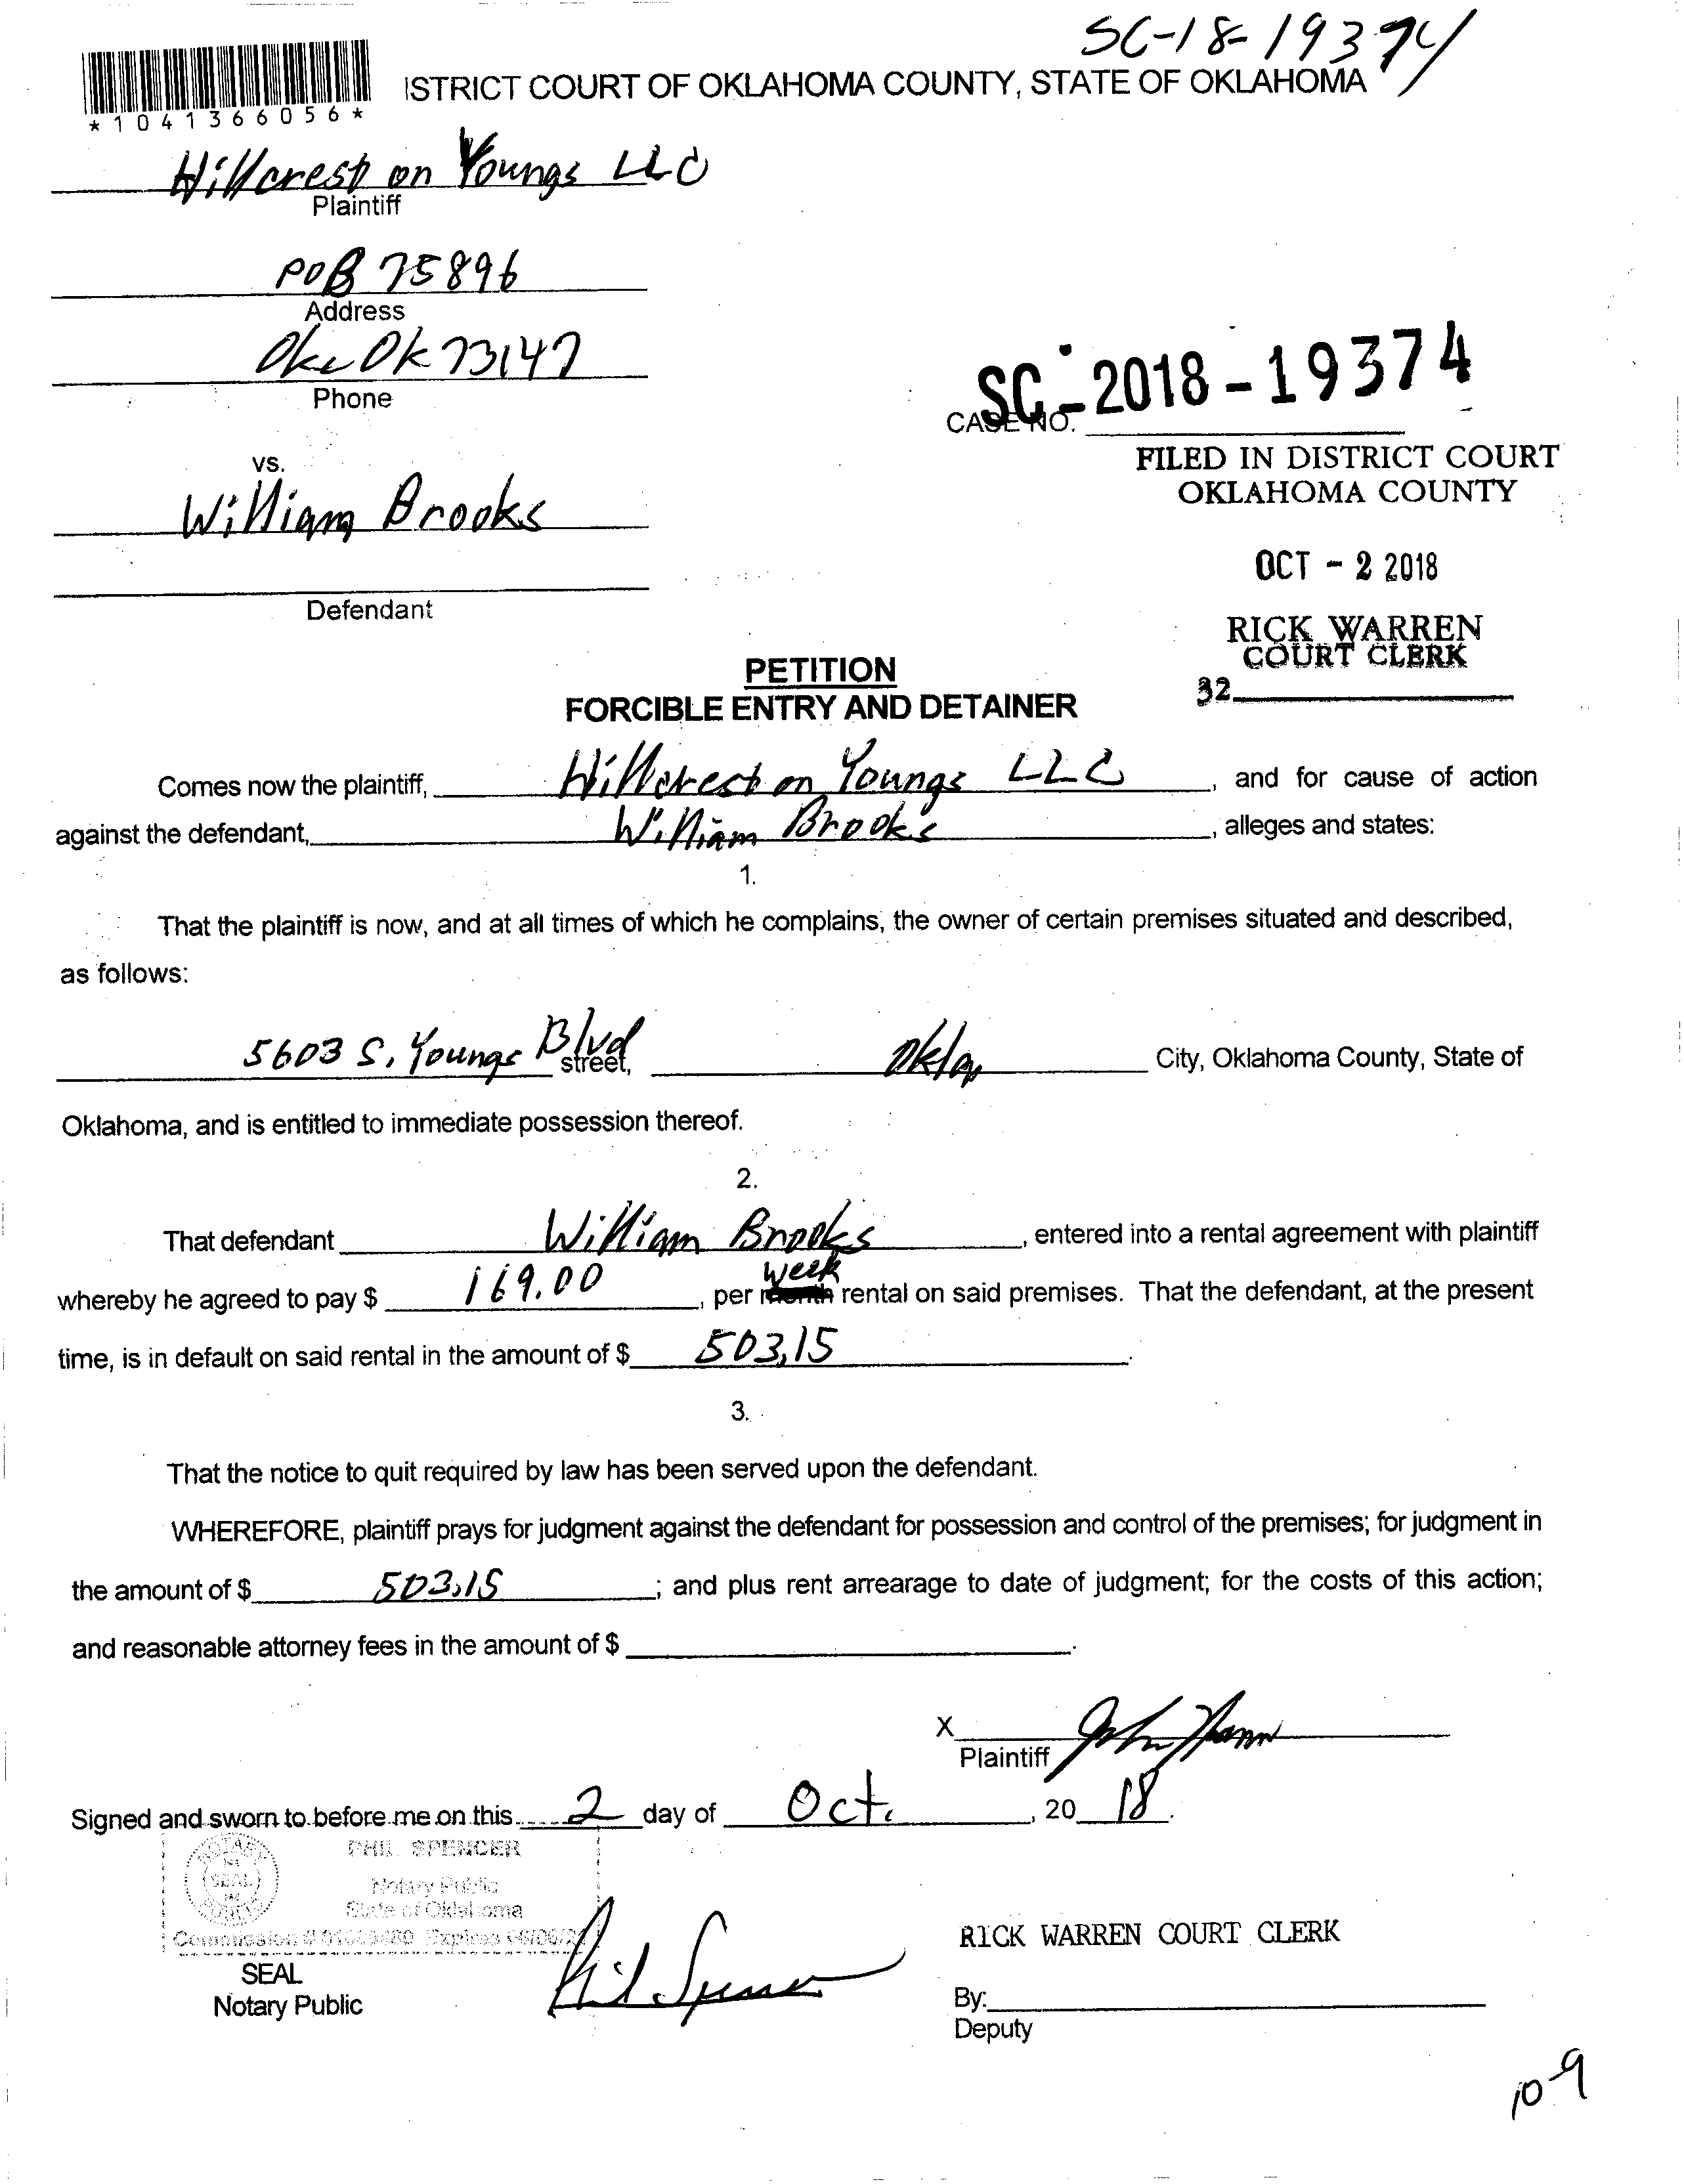 SC-18-19374
ISTRICT COURT OF OKLAHOMA COUNTY, STATE OF OKLAHOMA
*1041366056*
Hillcrest on Youngs LLC
Plaintiff
POB 75896
Address
Okc Ok 73147
Phone
SC-2018-19374
CASE NO.
FILED IN DISTRICT COURT
OKLAHOMA COUNTY
vs.
William Brooks
OCT - 2 2018
Defendant
RICK WARREN
COURT CLERK
32
PETITION
FORCIBLE ENTRY AND DETAINER
Comes now the plaintiff, Hillcrest on Youngs LLC, and for cause of action
against the defendant, William Brooks, alleges and states:
1.
That the plaintiff is now, and at all times of which he complains, the owner of certain premises situated and described,
as follows:
5603 S. Youngs Blvd street, Okla City, Oklahoma County, State of
Oklahoma, and is entitled to immediate possession thereof.
2.
That defendant William Brooks, entered into a rental agreement with plaintiff
whereby he agreed to pay $ 169.00, per month week rental on said premises. That the defendant, at the present
time, is in default on said rental in the amount of $ 503.15.
3.
That the notice to quit required by law has been served upon the defendant.
WHEREFORE, plaintiff prays for judgment against the defendant for possession and control of the premises; for judgment in
the amount of $ 503.15; and plus rent arrearage to date of judgment; for the costs of this action;
and reasonable attorney fees in the amount of $ .
X
Plaintiff
Signed and sworn to before me on this 2 day of Oct., 20 18.
PHIL SPENCER
NOTARY
SEAL
Notary Public
State of Oklahoma
Commission # Expires
SEAL
Notary Public
Phil Spencer
RICK WARREN COURT CLERK
By:
Deputy
10-9